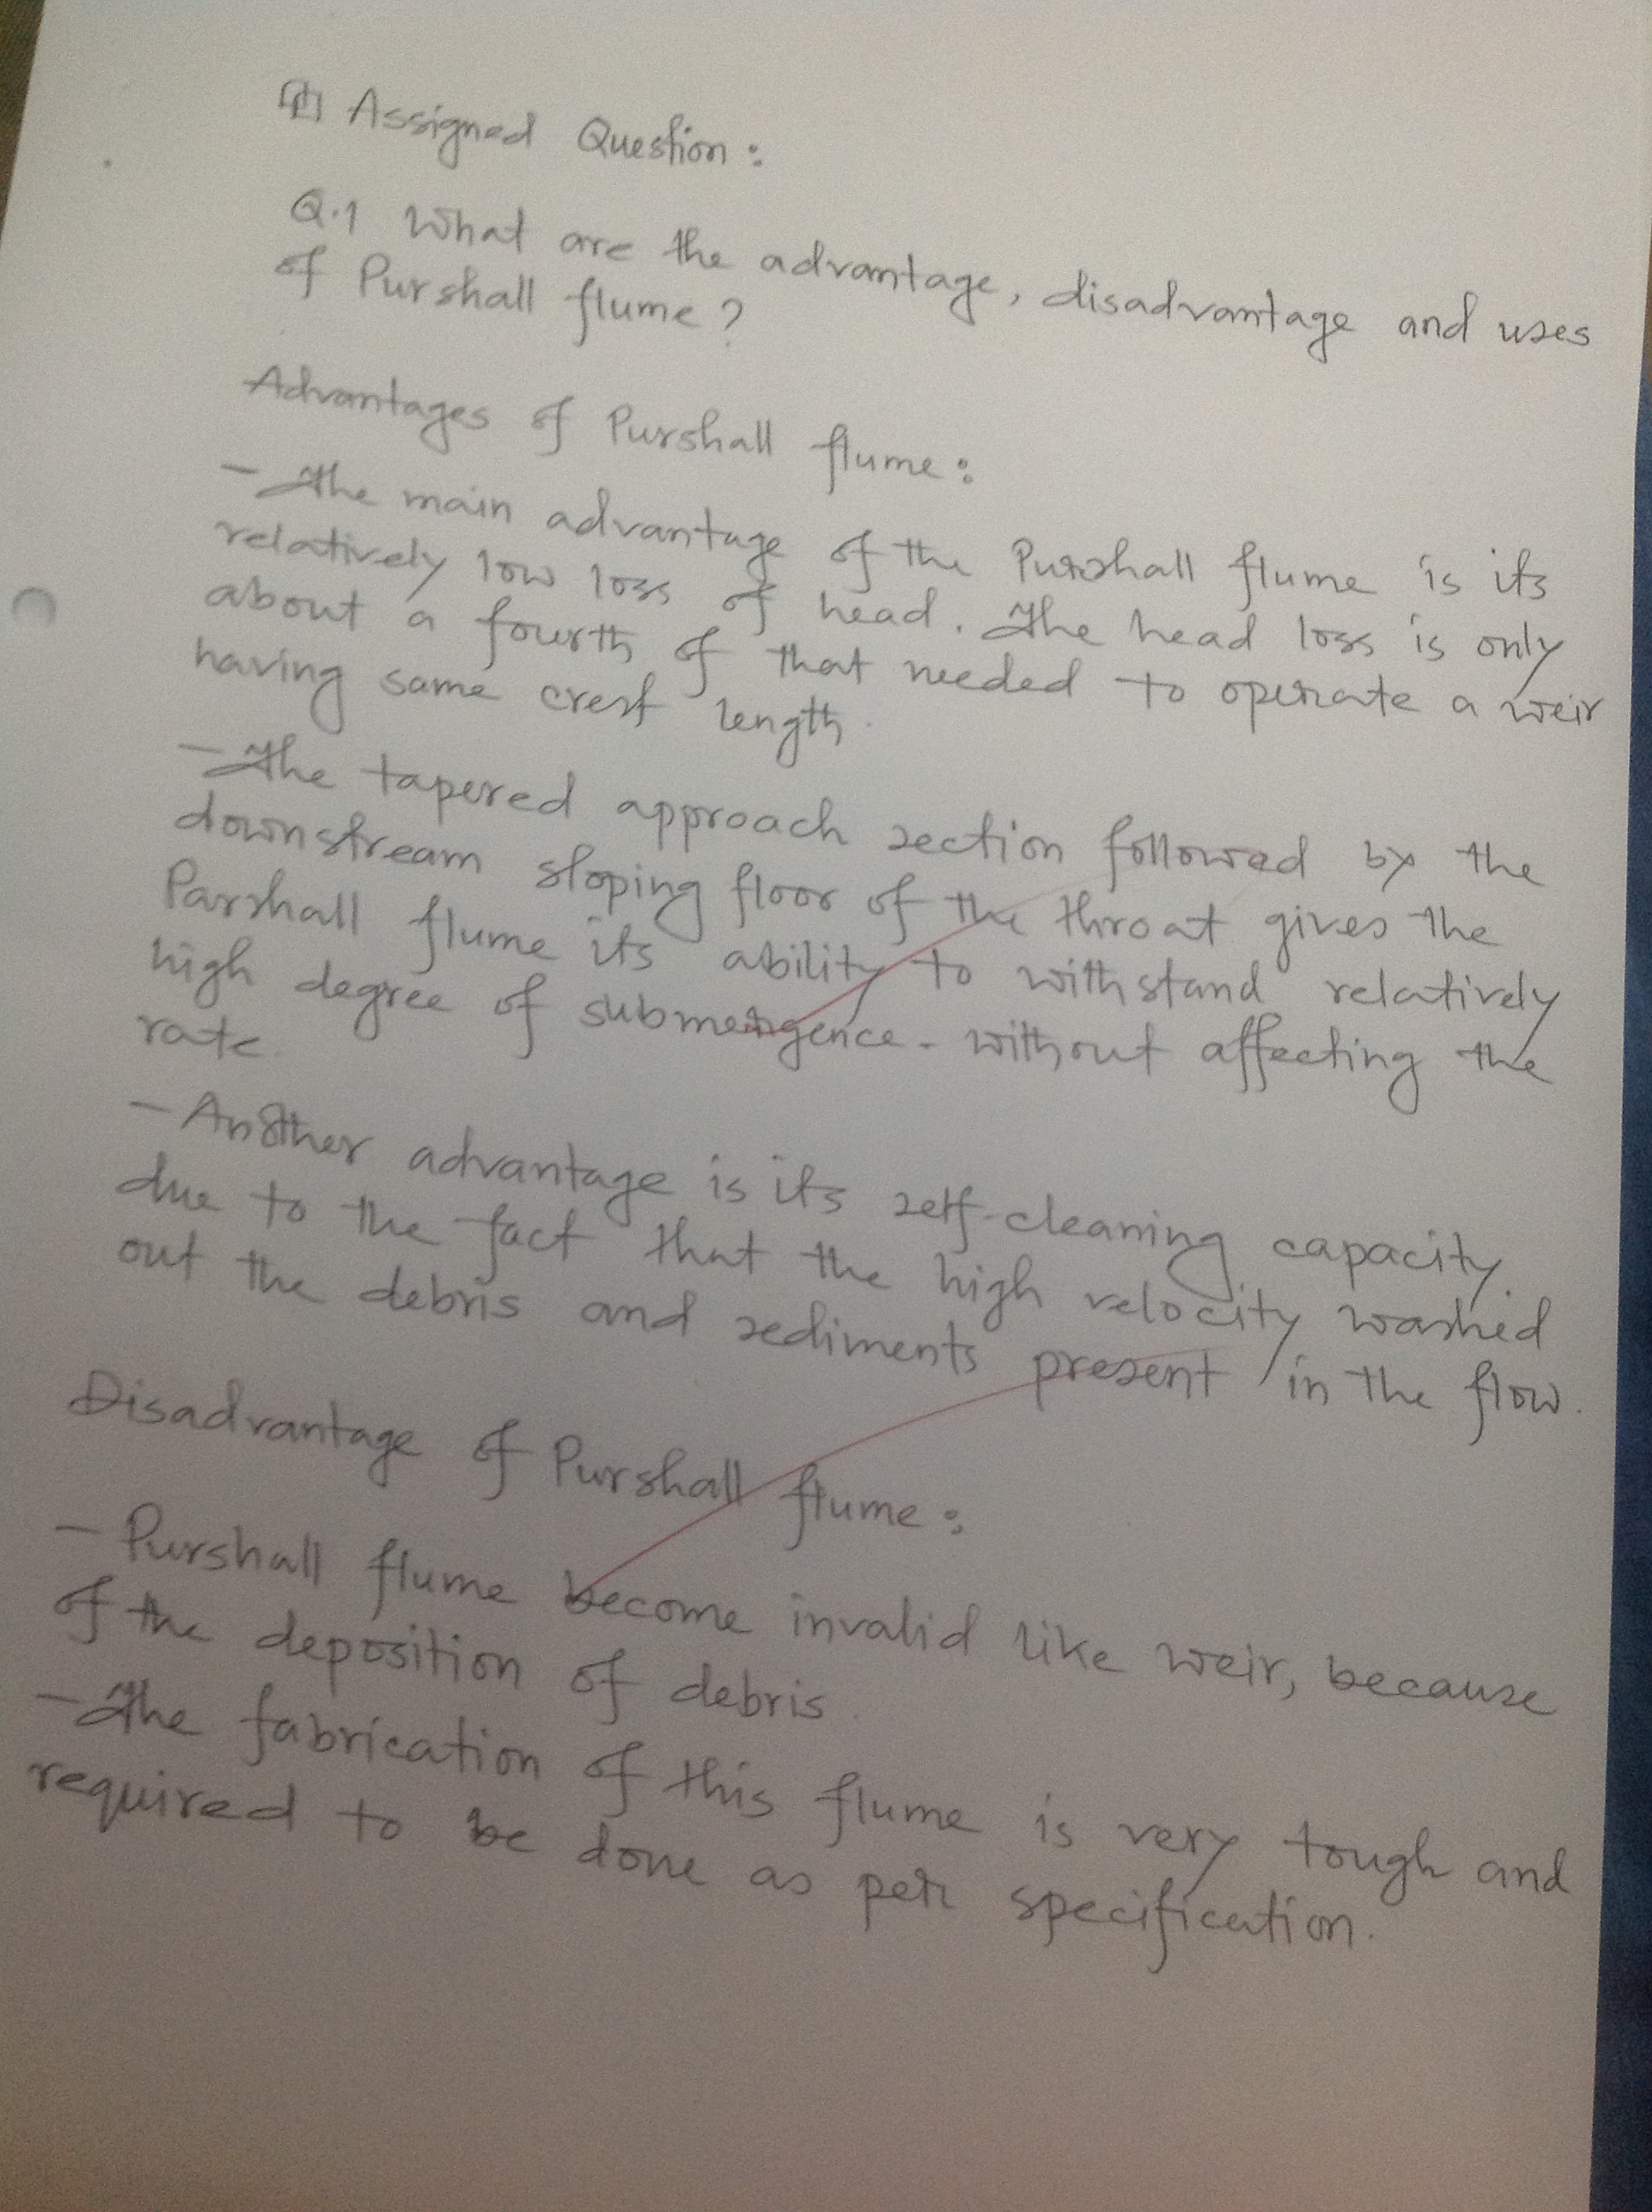 Assigned Question:
Q.1 What are the advantage, disadvantage and uses
of Purshall flume?
Advantages of Purshall flume:
- The main advantage of the Purshall flume is its
relatively low loss of head. The head loss is only
about a fourth of that needed to operate a weir
having same crest length.
- The tapered approach section followed by the
downstream sloping floor of the throat gives the
Parshall flume its ability to withstand relatively
high degree of submergence - without affecting the
rate.
- Another advantage is its self-cleaning capacity.
due to the fact that the high velocity washed
out the debris and sediments present in the flow.
Disadvantage of Purshall flume:
- Purshall flume become invalid like weir, because
of the deposition of debris.
- The fabrication of this flume is very tough and
required to be done as per specification.